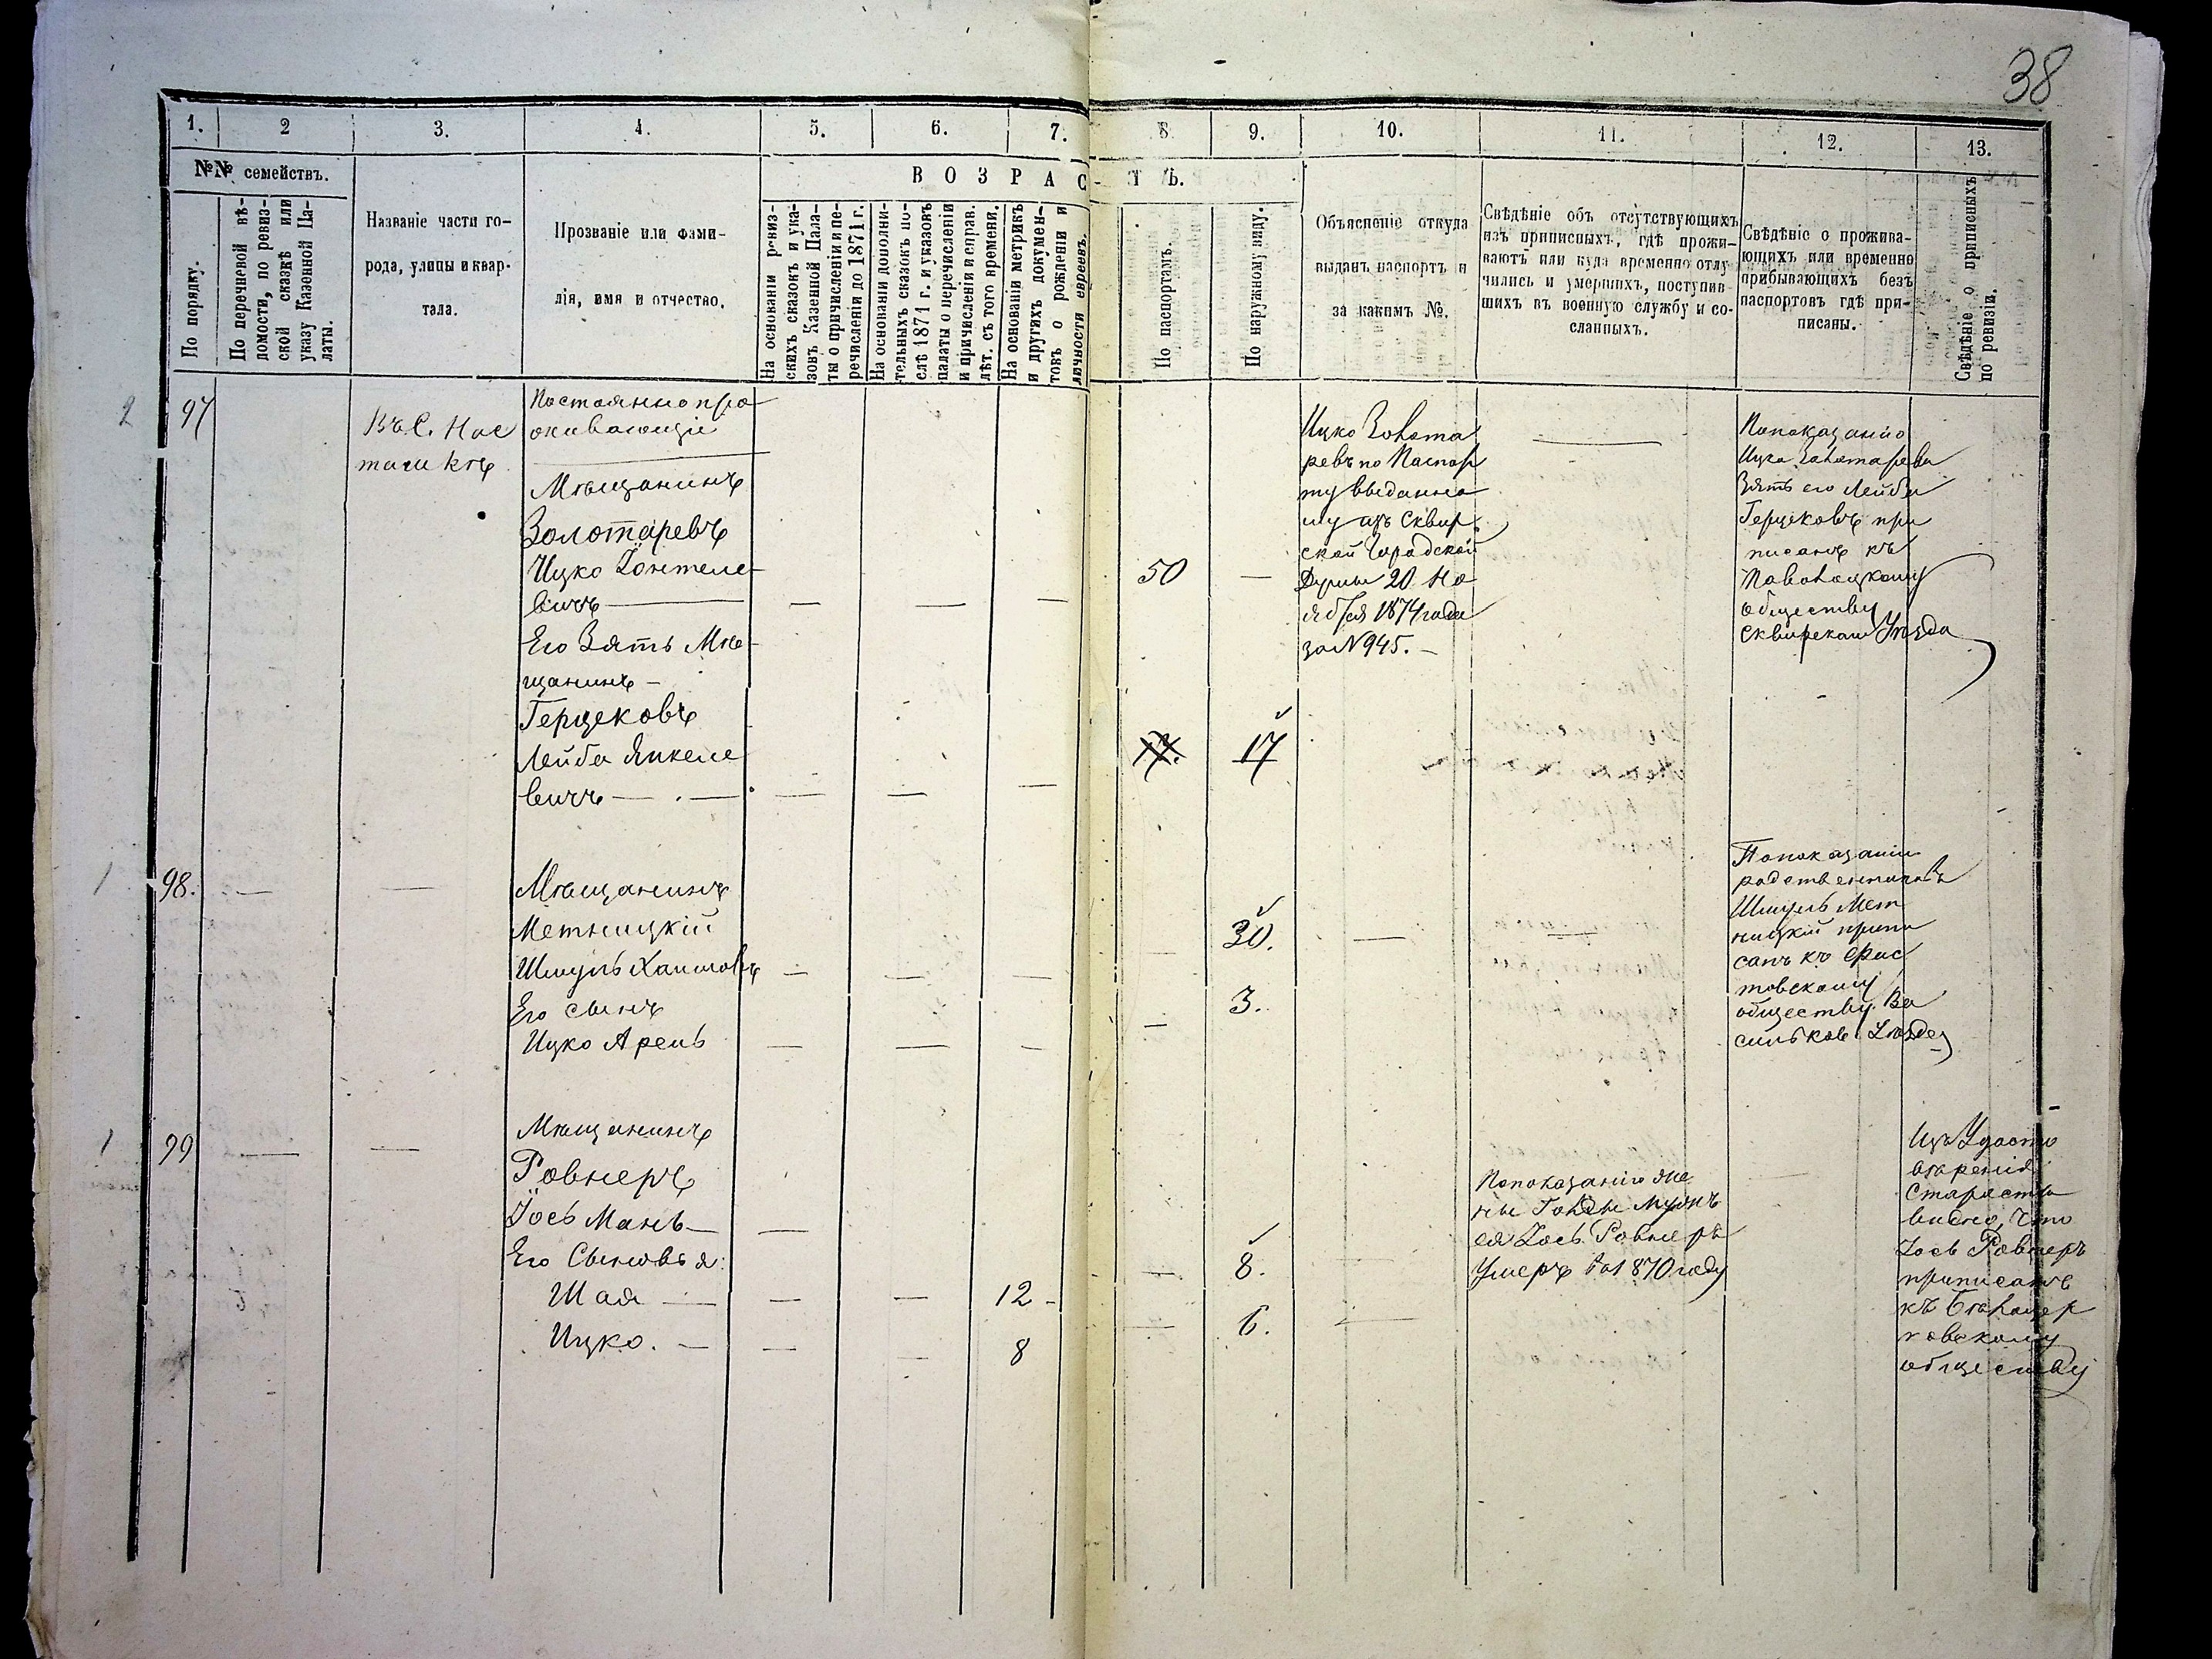 38
1.
2
3.
4.
5.
6.
7.
8.
9.
10.
11.
12.
13.
№№ семействъ.
ВОЗРАСТЪ.
По порядку.
По перечневой вѣ-
домости, по ревиз-
ской сказкѣ или
указу Казенной Па-
латы.
Названіе части го-
рода, улицы и квар-
тала.
Прозваніе или фами-
лія, имя и отчество.
На основаніи ревиз-
скихъ сказокъ и ука-
зовъ Казенной Пала-
ты о причисленіи и пе-
речисленіи до 1871 г.
На основаніи дополни-
тельныхъ сказокъ по-
слѣ 1871 г. и указовъ
палаты о перечисленіи
и причисленіи и справ.
лѣт. съ того времени.
На основаніи метрикъ
и другихъ докумен-
товъ о рожденіи и
личности евреевъ.
По паспортамъ.
По наружному виду.
Объясненіе откуда
выданъ паспортъ и
за какимъ №.
Свѣдѣніе объ отсутствующихъ
изъ приписныхъ, гдѣ прожи-
ваютъ или куда временно отлу
чились и умершихъ, поступив
шихъ въ военную службу и со-
сланныхъ.
Свѣдѣніе о прожива-
ющихъ или временно
прибывающихъ безъ
паспортовъ гдѣ при-
писаны.
Свѣдѣніе о приписныхъ
по ревизіи.
2
97
Въ С. Нас
ташкѣ
Постоянно про
живающіе
Мѣщанинъ
Золотаревъ
Ицко
вичъ
Его Зять Мѣ-
щанинъ
Герцековъ
Лейба Янкеле
вичъ
50
17.
17
Ицко Золота
ревъ по Паспор
ту выданно
му изъ Сквир
ской Городской
Думы 20 Но
ября 1874 года
за N 945.
По показанію
Ицка Золотарева
Зять его Лейба
Герцековъ при
писанъ къ
Паволоцкому
обществу
Сквирскаго Уѣзда
1
98.
Мѣщанинъ
Метницкій
Шмуль Хаимовъ
Его сынъ
Ицко Арель
30.
3.
По показанію
родственниковъ
Шмуль Мет
ницкій припи
санъ къ Фас
товскому
обществу Ва
сильков Уѣзда
1
99
Мѣщанинъ
Ровнеръ
Іось Мань
Его Сыновья:
Шая
12
8.
Ицко.
8
6.
По показанію же
ны Гольды мужъ
ея Іось Ровнеръ
Умеръ въ 1870 году
Изъ Удосто
вѣренія
Старосты
видно, что
Іось Ровнеръ
приписанъ
къ Бѣлоцер
ковскому
обществу